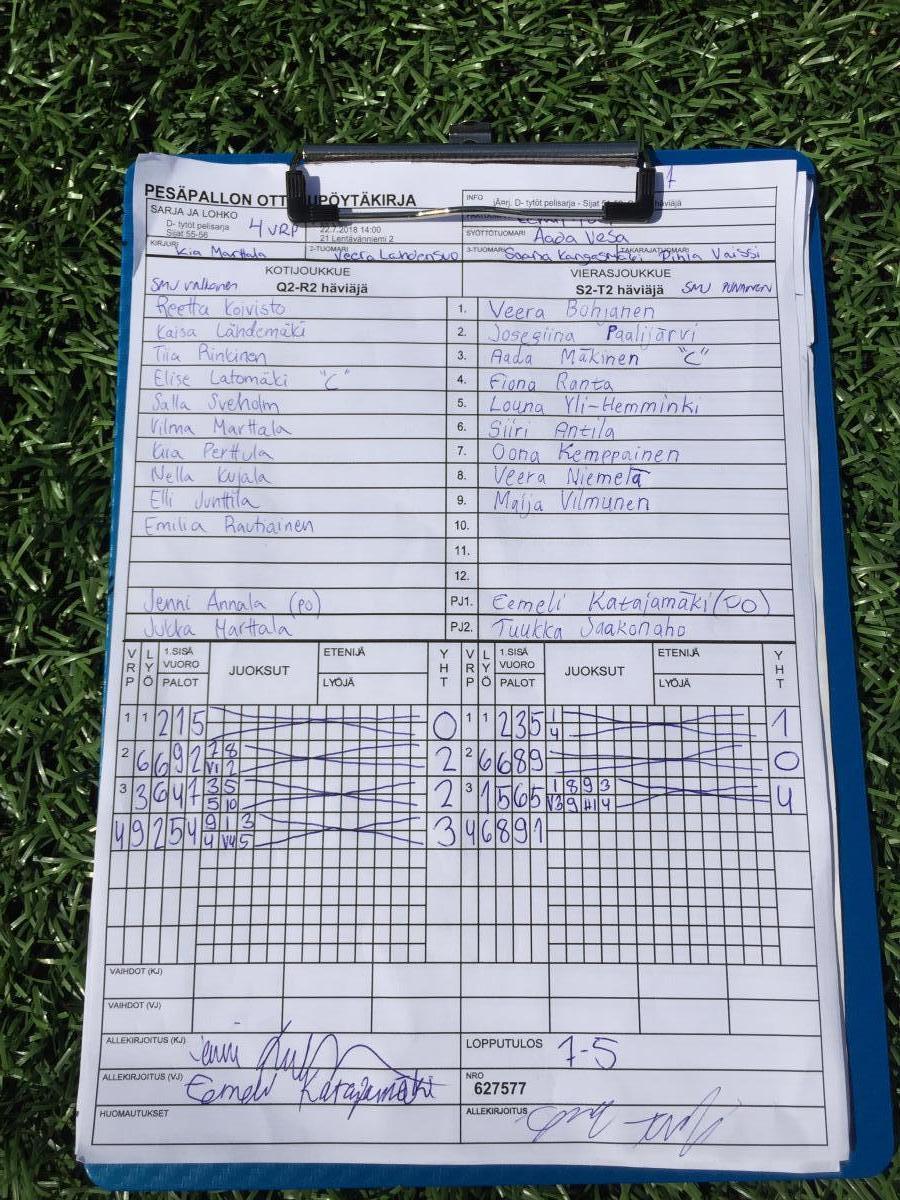 PESÄPALLON OTT UPÖYTÄKIRJA
INFO
D- tytöt pelisarja - Sijat
häviäjä
SARJA JA LOHKO
D- tytöt pelisarja
Sijat 55-56
4 VRP
22.7.2018 14:00
21 Lentävänniemi 2
SYÖTTÖTUOMARI Aada Vesa
KIRJURI Kia Marttala
2-TUOMARI Veera Lahdensuo
3-TUOMARI Saana Kangasmäki
TAKARAJATUOMARI Pihla Väissi
KOTIJOUKKUE
VIERASJOUKKUE
SMJ Valkonen Q2-R2 häviäjä
S2-T2 häviäjä SMJ PUNAINEN
Reetta Koivisto 1. Veera Bohjanen
Kaisa Lähdemäki 2. Josefiina Paalijärvi
Tiia Rinkinen 3. Aada Mäkinen "C"
Elise Latomäki "C" 4. Fiona Ranta
Salla Sveholm 5. Louna Yli-Hemminki
Vilma Marttala 6. Siiri Antila
Kira Perttula 7. Oona Kemppainen
Nella Kujala 8. Veera Niemelä
Elli Junttila 9. Maija Vilmunen
Emilia Rautiainen 10.
11.
12.
Jenni Annala (po) PJ1. Eemeli Katajamäki (PO)
Jukka Marttala PJ2. Tuukka Jaakonaho
VRP LYÖ 1.SISÄ VUORO PALOT JUOKSUT ETENIJÄ LYÖJÄ YHT VRP LYÖ 1.SISÄ VUORO PALOT JUOKSUT ETENIJÄ LYÖJÄ YHT
1 1 2 1 5 0 1 1 2 3 5 1 4 1
2 6 6 9 2 7 8 V1 2 2 2 6 6 8 9 0
3 3 6 4 7 3 5 5 10 2 3 1 5 6 5 1 8 9 3 V3 9 #1 4 4
4 9 2 5 4 9 1 3 4 V4 5 3 4 6 8 9 1
VAIHDOT (KJ)
VAIHDOT (VJ)
ALLEKIRJOITUS (KJ) Jenni
LOPPUTULOS 7-5
ALLEKIRJOITUS (VJ) Eemeli Katajamäki
NRO
627577
HUOMAUTUKSET
ALLEKIRJOITUS